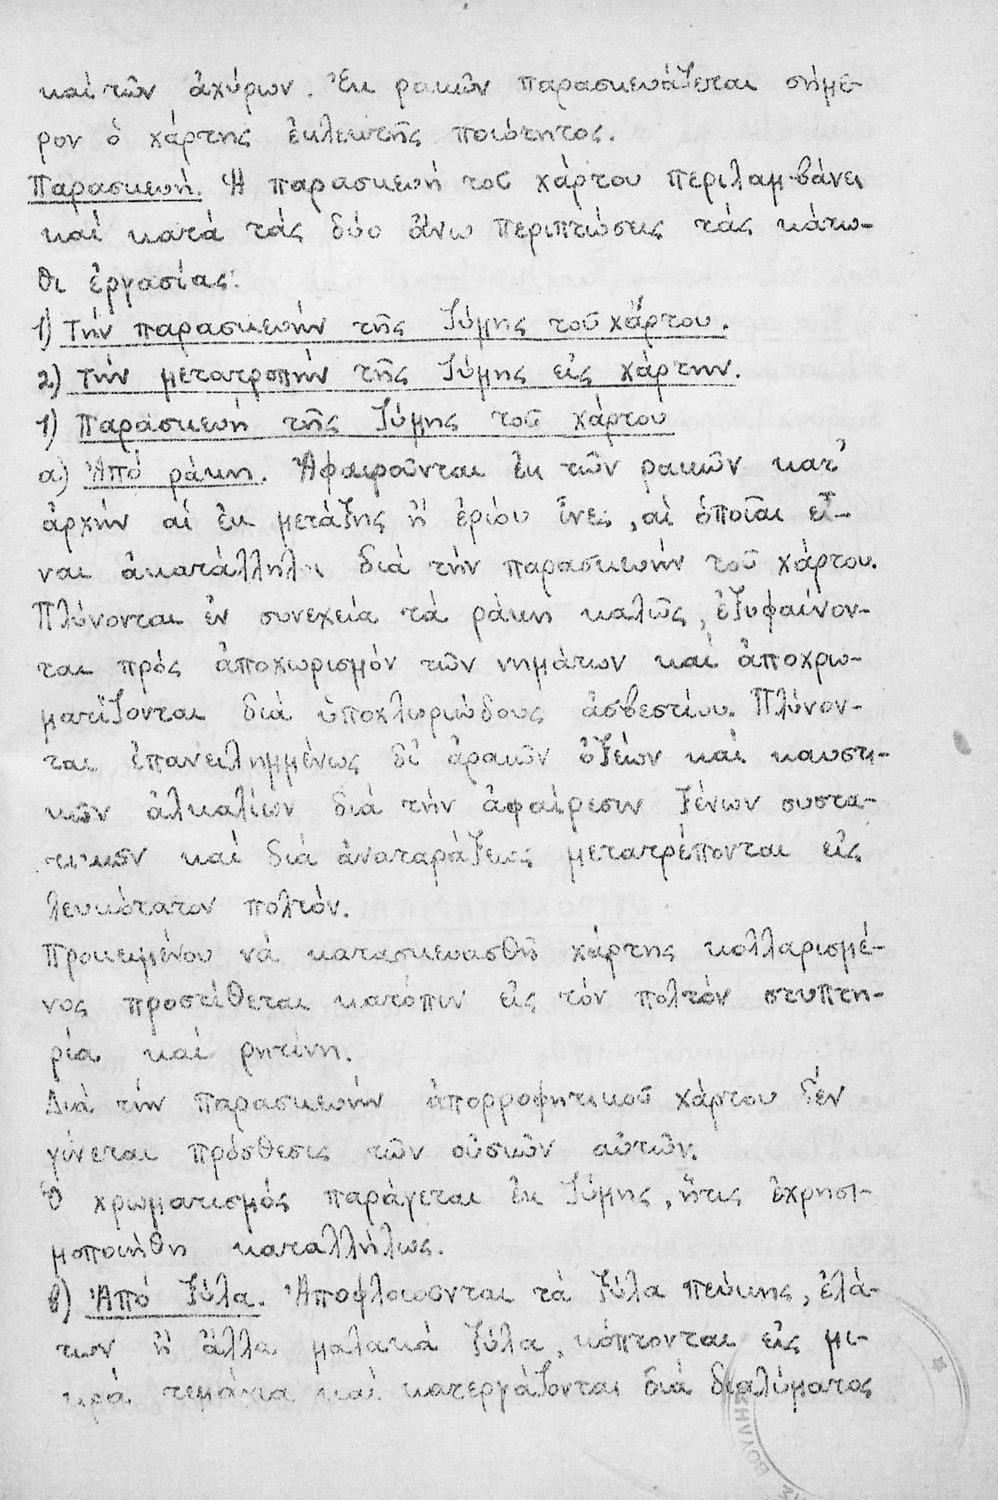 καί τῶν ἀχύρων. Ἐκ ρακῶν παρασκευάζεται σήμε-
ρον ὁ χάρτης ἐκλεκτῆς ποιότητος.
Παρασκευή. Ἡ παρασκευή τοῦ χάρτου περιλαμβάνει
καί κατά τάς δύο ἄνω περιπτώσεις τάς κάτω-
θι ἐργασίας:
1) Τήν παρασκευήν τῆς ζύμης τοῦ χάρτου.
2) Τήν μετατροπήν τῆς ζύμης εἰς χάρτην.
1) Παρασκευή τῆς ζύμης τοῦ χάρτου
α) Ἀπό ράκη. Ἀφαιροῦνται ἐκ τῶν ρακῶν κατ'
ἀρχήν αἱ ἐκ μετάξης ἤ ἐρίου ἶνες, αἱ ὁποῖαι εἶ-
ναι ἀκατάλληλοι διά τήν παρασκευήν τοῦ χάρτου.
Πλύνονται ἐν συνεχεία τά ράκη καλῶς, ἐξυφαίνον-
ται πρός ἀποχωρισμόν τῶν νημάτων καί ἀποχρω-
ματίζονται διά ὑποχλωριώδους ἀσβεστίου. Πλύνον-
ται ἐπανειλημμένως δι' ἀραιῶν ὀξέων καί καυστι-
κῶν ἀλκαλίων διά τήν ἀφαίρεσιν ξένων συστα-
τικῶν καί διά ἀναταράξεως μετατρέπονται εἰς
λευκότατον πολτόν.
Προκειμένου νά κατασκευασθῆ χάρτης κολλαρισμέ-
νος προστίθεται κατόπιν εἰς τόν πολτόν στυπτη-
ρία καί ρητίνη.
Διά τήν παρασκευήν ἀπορροφητικοῦ χάρτου δέν
γίνεται πρόσθεσις τῶν οὐσιῶν αὐτῶν.
Ὁ χρωματισμός παράγεται ἐκ ζύμης, ἥτις ἐχρησι-
μοποιήθη καταλλήλως.
β) Ἀπό ξύλα. Ἀποφλοιοῦνται τά ξύλα πεύκης, ἐλά-
των ἤ ἄλλα μαλακά ξύλα, κόπτονται εἰς μι-
κρά τεμάχια καί κατεργάζονται διά διαλύματος
ΒΟΥΛΗΣ